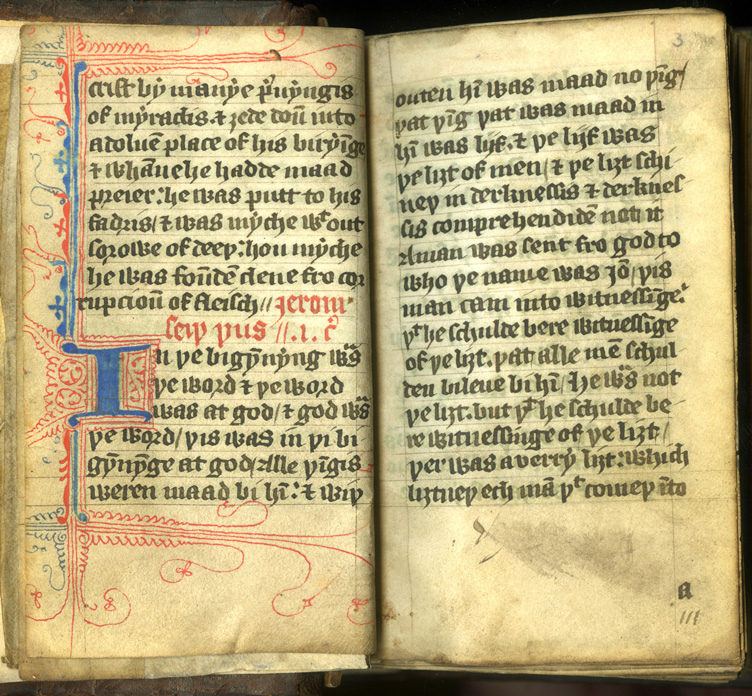 crist bẏ mãnẏe p̃uẏngis
of mẏraclis ⁊ ȝede doũ into
a doluẽ place of his biriẏ̃ge
⁊ whãne he hadde maad
preier: he was putt to his
fadris/ ⁊ was mẏche wᵗout
sorowe of deeþ: hou mẏche
he was foũdẽ clene fro cor
rupcioũ of fleisch // Jerom
seiþ þus //.1. c̃
In þe bigẏ̃nẏng wᵃs
þe word ⁊ þe word
was at god/ ⁊ god wᵃs
þe word/ þis was in þi bi
gẏ̃nẏnge at god/ Alle þĩgis
weren maad bi hĩ: ⁊ wiþ
3
outen hĩ was maad no þĩg/
þat þĩg þat was maad in
hĩ was lijf. ⁊ þe lijf was
þe liȝt of men/ ⁊ þe liȝt schi
neþ in derknessis ⁊ derknes
sis comprehendidẽ not it
A man was sent fro god to
who þe name was Jõ/ þis
man cam into witnessĩge:
þᵗ he schulde bere witnessĩge
of þe liȝt. þat alle mẽ schul
den bileue bi hĩ/ he wᵃs not
þe liȝt. but þᵗ he schulde be
re witnessinge of þe liȝt/
þer was a verrẏ liȝt: which
liȝtneþ ech mã þᵗ comeþ ĩto
a
111